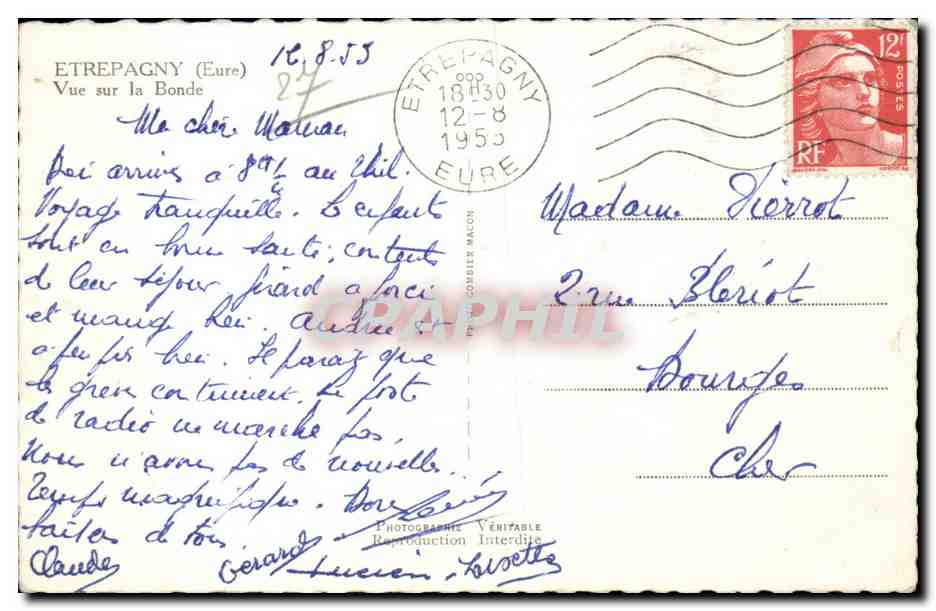 ETREPAGNY (Eure)
Vue sur la Bonde
12.8.53
27
ETREPAGNY
18H30
12-8
1953
EURE
12F
POSTES
RF
Ma chère Maman
Bien arrivés à 8h½ au Thil.
Voyage tranquille. Les enfants
sont en bonne santé, contents
de leur séjour. Gérard a forci
et mange bien. André est
a peu près bien. Il paraît que
les grèves continuent. Le poste
de radio ne marche pas.
Nous n'avons pas de nouvelles.
Temps magnifique. Bons
baisers de tous.
Claude
Gérard
Lucien
Lisette
Madame Pierrot
2 rue Blériot
Bourges
Cher
PHOTO COMBIER MACON
PHOTOGRAPHIE VÉRITABLE
Reproduction Interdite
CPAPHIL